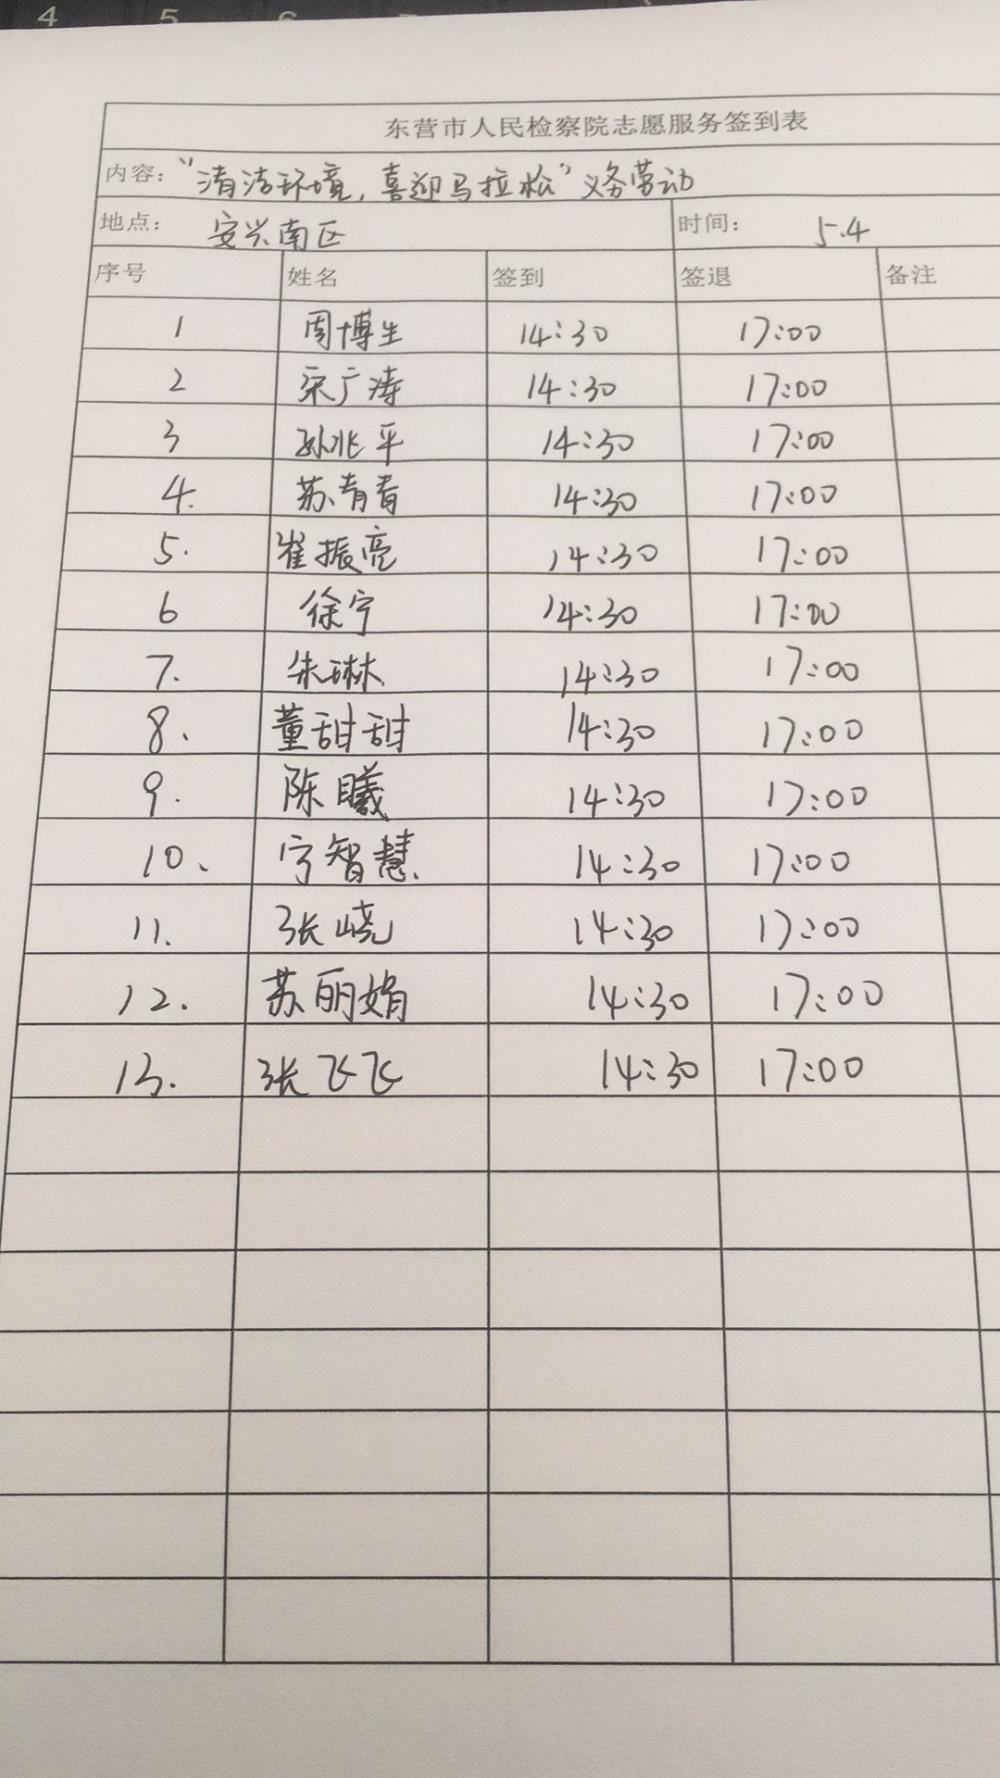 4 5 6
东营市人民检察院志愿服务签到表
内容：“清洁环境，喜迎马拉松”义务劳动
地点：安兴南区 时间：5.4
序号 姓名 签到 签退 备注
1 周博生 14:30 17:00
2 宋广涛 14:30 17:00
3 孙兆平 14:30 17:00
4. 苏青青 14:30 17:00
5. 崔振亮 14:30 17:00
6 徐宁 14:30 17:00
7. 朱琳 14:30 17:00
8. 董甜甜 14:30 17:00
9. 陈曦 14:30 17:00
10. 宁智慧 14:30 17:00
11. 张峣 14:30 17:00
12. 苏丽娟 14:30 17:00
13. 张飞飞 14:30 17:00